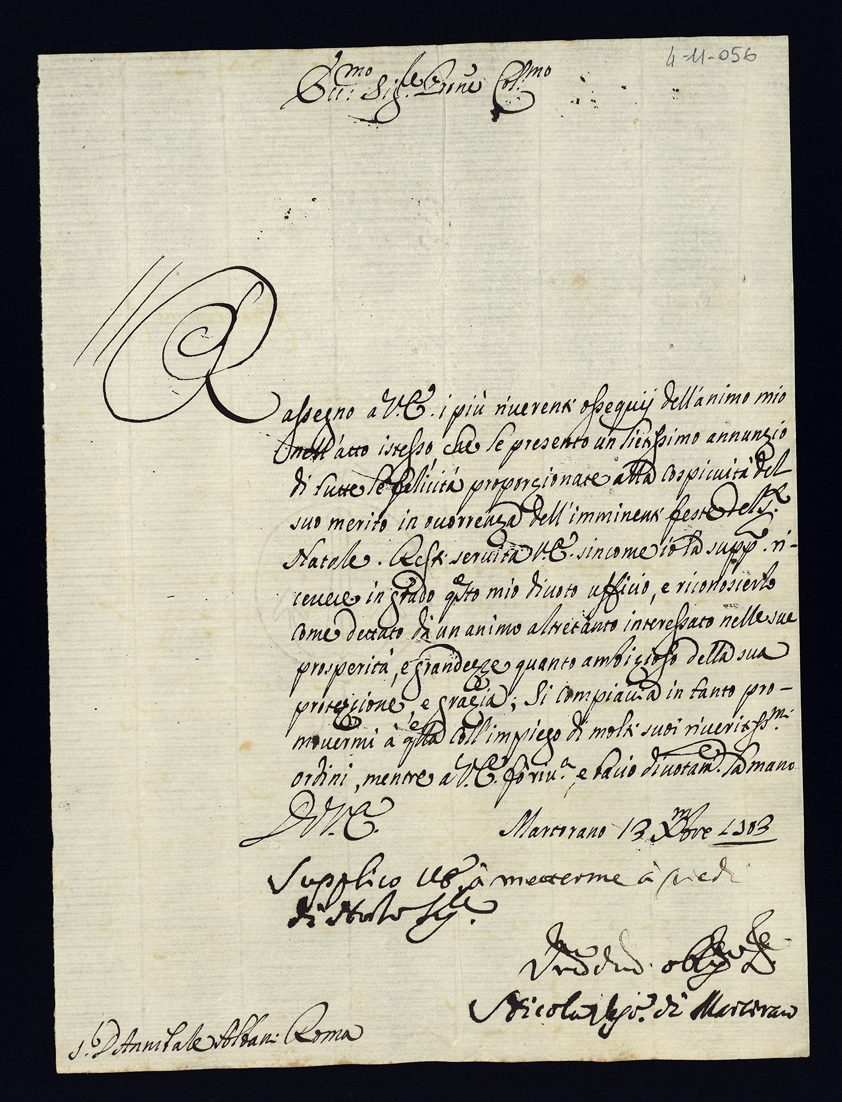 4-11-056
Ecc.mo Sig.re P.rone Col.mo
Rassegno a V.E. i più riverenti ossequij dell'animo mio
nell'atto istesso che le presento un lietissimo annunzio
di tutte le felicità proporzionate alla cospicuità del
suo merito in occorrenza dell'imminenti feste del S.
Natale. Resti servita V.E. sincome io la supp.co ri-
cevere in grado q.sto mio divoto ufficio, e riconoscerlo
come dettato da un animo altretanto interessato nelle sue
prosperità, e grandezze quanto ambizioso della sua
protezzione, e grazia; Si compiaccia in tanto pro-
movermi à q.sta coll'impiego di molti suoi riveritiss.mi
ordini, mentre a V.E. fò riv.a, e bacio divotam.te la mano
D.V.E.
Martorano 13 Xbre 1703
Supplico V.E. à metterme à piedi
di
Nicola di Martorano
D Annibale Albani Roma